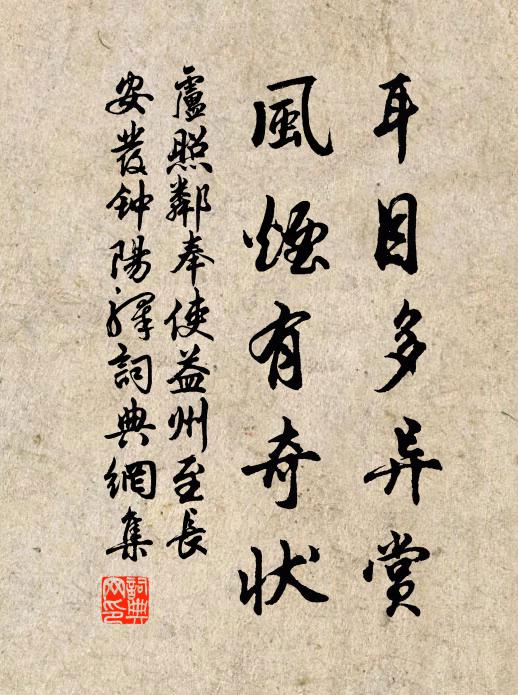 耳目多异赏
風煙有奇状
盧照鄰奉使益州至長
安發钟陽驛詞典網集
詞典
网印